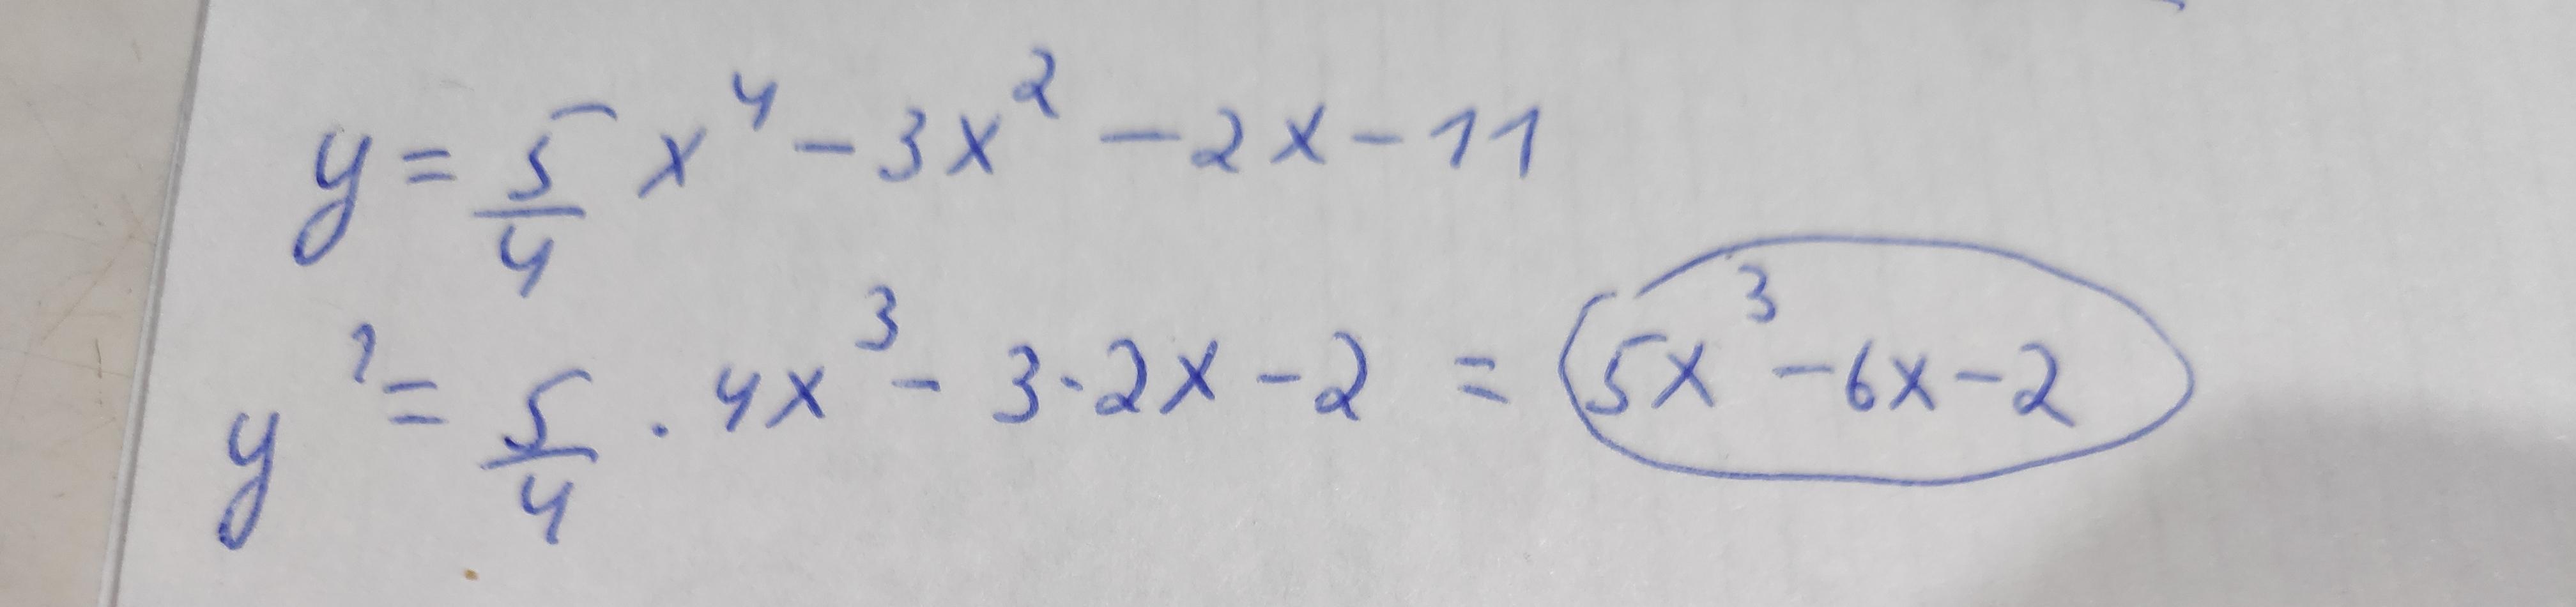 y = 5/4 x⁴ - 3x² - 2x - 11
y' = 5/4 · 4x³ - 3·2x - 2 = 5x³ - 6x - 2